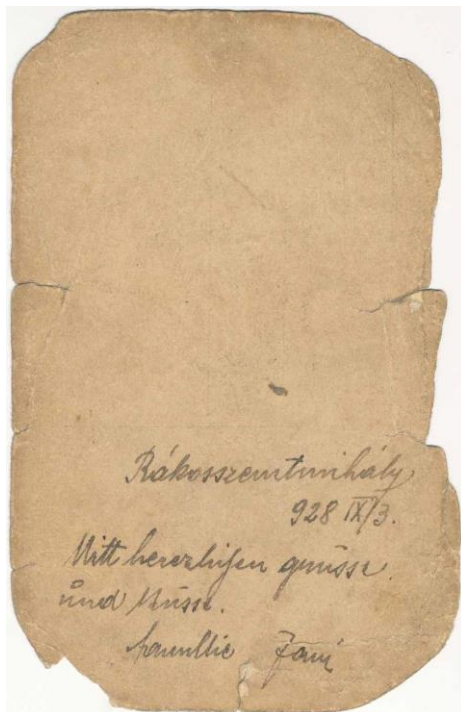 Rákosszentmihály
928 IX/3.
Mitt herzlichen grüsse
und Küsse.
Familie